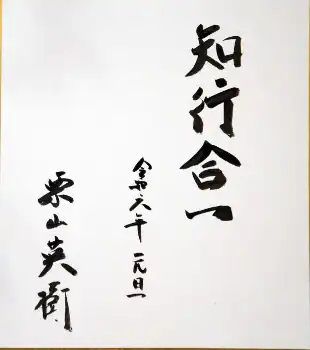 知行合一
令和六年 元旦
栗山英樹